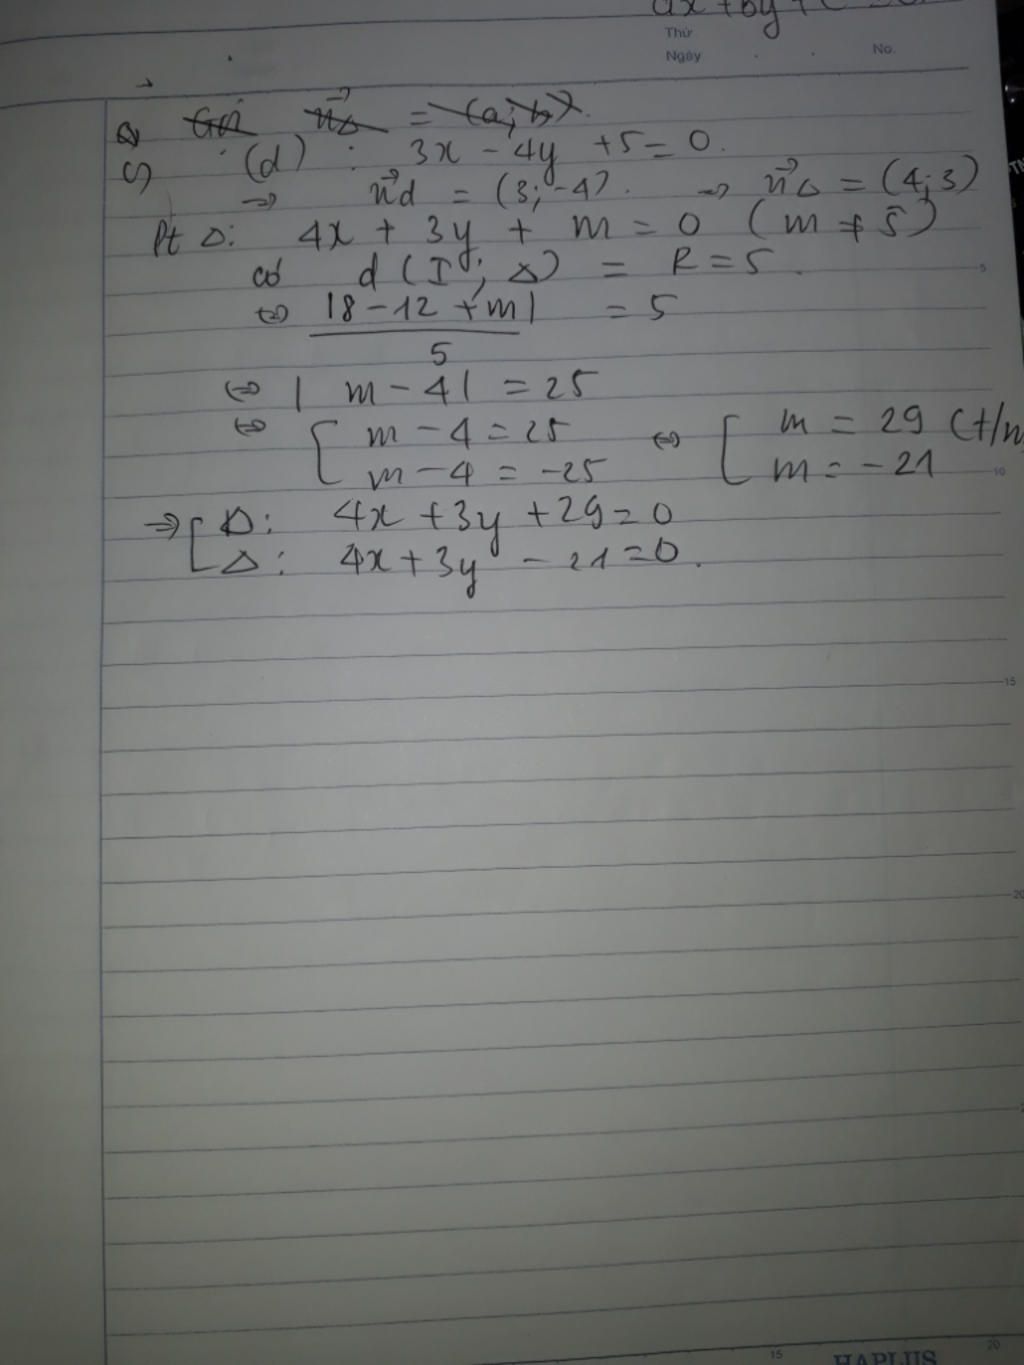 ax + by + c
Thứ
Ngày
No.
Gọi n⃗Δ = (a; b).
c) (d) : 3x - 4y + 5 = 0.
→ n⃗d = (3; -4). → n⃗Δ = (4; 3)
Pt Δ: 4x + 3y + m = 0 (m ≠ 5)
có d(I; Δ) = R = 5.
⇔ |8 - 12 + m| / 5 = 5
⇔ |m - 4| = 25
⇔ [ m - 4 = 25 ⇔ [ m = 29 (t/m
m - 4 = -25 m = -21
⇒ [ Δ: 4x + 3y + 29 = 0
Δ: 4x + 3y - 21 = 0.
5
10
15
20
15
20
HAPLUS